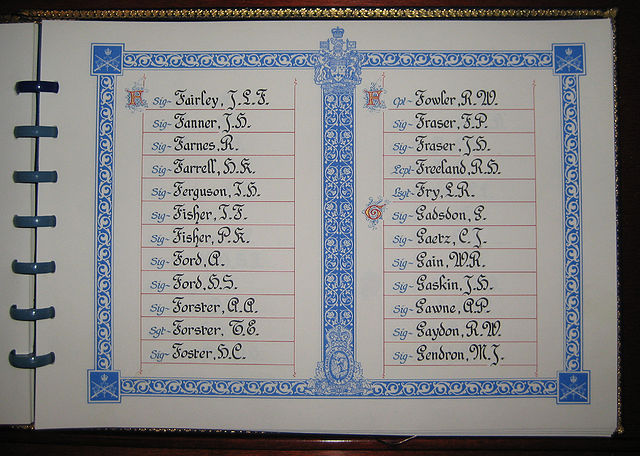 F Sig~ Fairley, J.L.F.
Sig~ Fanner, J.H.
Sig~ Farnes, R.
Sig~ Farrell, H.K.
Sig~ Ferguson, I.H.
Sig~ Fisher, T.F.
Sig~ Fisher, P.K.
Sig~ Ford, A.
Sig~ Ford, H.S.
Sig~ Forster, A.A.
Sgt~ Forster, G.E.
Sig~ Foster, H.C.
F Cpl~ Fowler, R.W.
Sig~ Fraser, F.P.
Sig~ Fraser, J.H.
Lcpl~ Freeland, R.H.
Lsgt~ Fry, L.R.
G Sig~ Gadsdon, G.
Sig~ Gaetz, C.J.
Sig~ Gain, W.R.
Sig~ Gaskin, J.H.
Sig~ Gawne, A.P.
Sig~ Gaydon, R.W.
Sig~ Gendron, M.J.